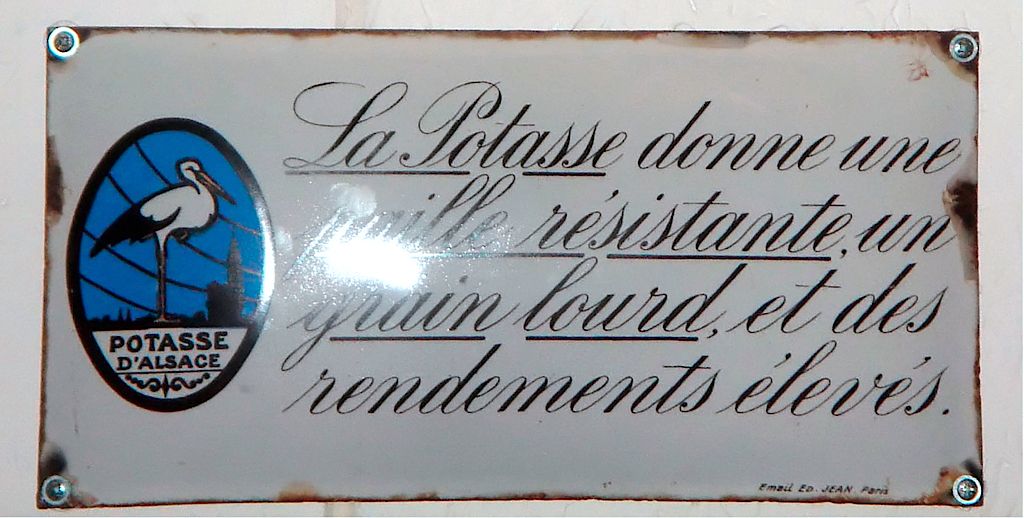 La Potasse donne une
paille résistante, un
grain lourd, et des
rendements élevés.
POTASSE
D'ALSACE
Email Ed. JEAN Paris